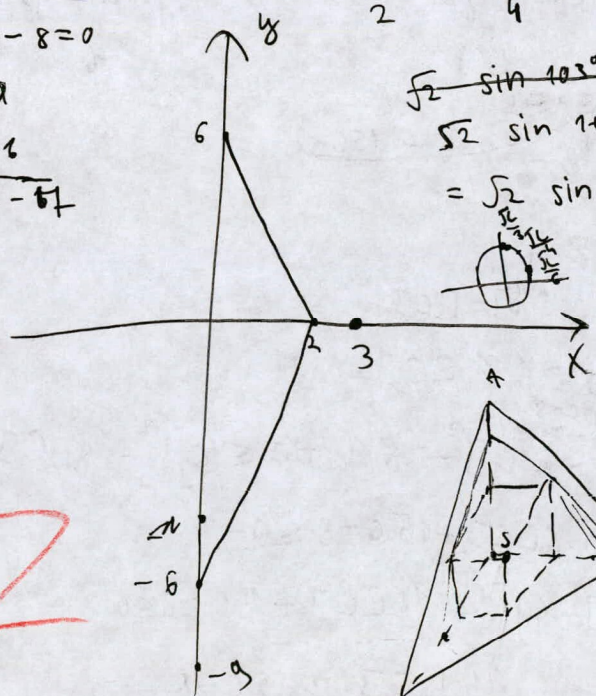 - 8 = 0
2 4
y
√2 sin 103°
6
√2 sin
- 17
= √2 sin
2
3
X
A
S
- 6
- 9
2